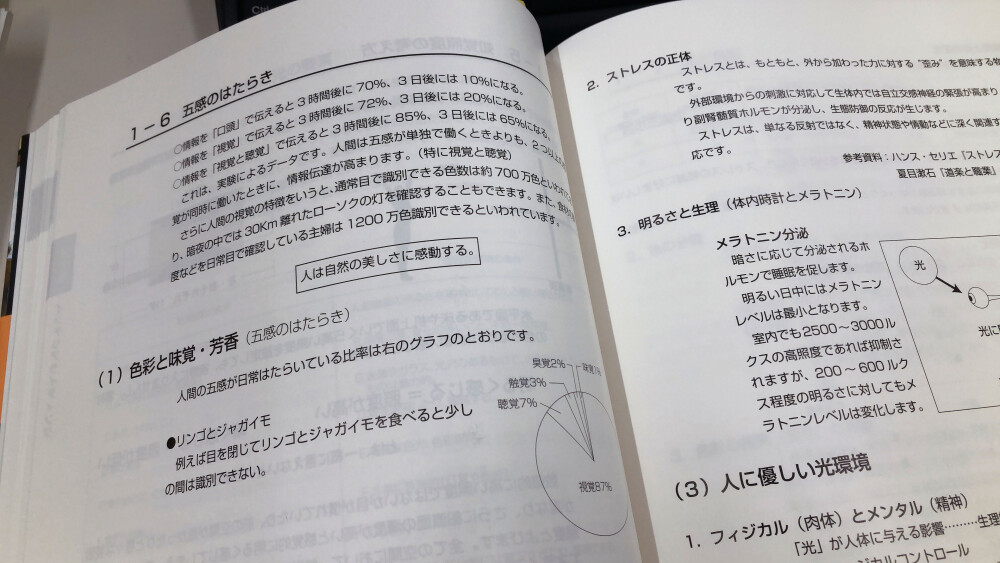 1－6 五感のはたらき
○情報を「口頭」で伝えると3時間後に70%、3日後には10%になる。
○情報を「視覚」で伝えると3時間後に72%、3日後には20%になる。
○情報を「視覚と聴覚」で伝えると3時間後に85%、3日後には65%になる。
これは、実験によるデータです。人間は五感が単独で働くときよりも、2つ以上の
覚が同時に働いたときに、情報伝達が高まります。（特に視覚と聴覚）
さらに人間の視覚の特徴をいうと、通常目で識別できる色数は約700万色といわれ
り、暗夜の中では30Km離れたローソクの灯を確認することもできます。また、
度などを日常目で確認している主婦は1200万色識別できるといわれています。
人は自然の美しさに感動する。
（1）色彩と味覚・芳香（五感のはたらき）
人間の五感が日常はたらいている比率は右のグラフのとおりです。
●リンゴとジャガイモ
例えば目を閉じてリンゴとジャガイモを食べると少し
の間は識別できない。
臭覚2%
味覚1%
触覚3%
聴覚7%
視覚87%
2. ストレスの正体
ストレスとは、もともと、外から加わった力に対する“歪み”を意味する
です。
外部環境からの刺激に対応して生体内では自立交感神経の緊張が高まり
り副腎髄質ホルモンが分泌し、生物防御の反応が生じます。
ストレスは、単なる反射ではなく、精神状態や情動などに深く関連す
応です。
参考資料：ハンス・セリエ「ストレス
夏目漱石「道楽と職業」
3. 明るさと生理（体内時計とメラトニン）
メラトニン分泌
暗さに応じて分泌されるホ
ルモンで睡眠を促します。
明るい日中にはメラトニン
レベルは最小となります。
室内でも2500～3000ル
クスの高照度であれば抑制さ
れますが、200～600ルク
ス程度の明るさに対してもメ
ラトニンレベルは変化します。
光
光に
（3）人に優しい光環境
1. フィジカル（肉体）とメンタル（精神）
「光」が人体に与える影響………生理
ジカルコントロール